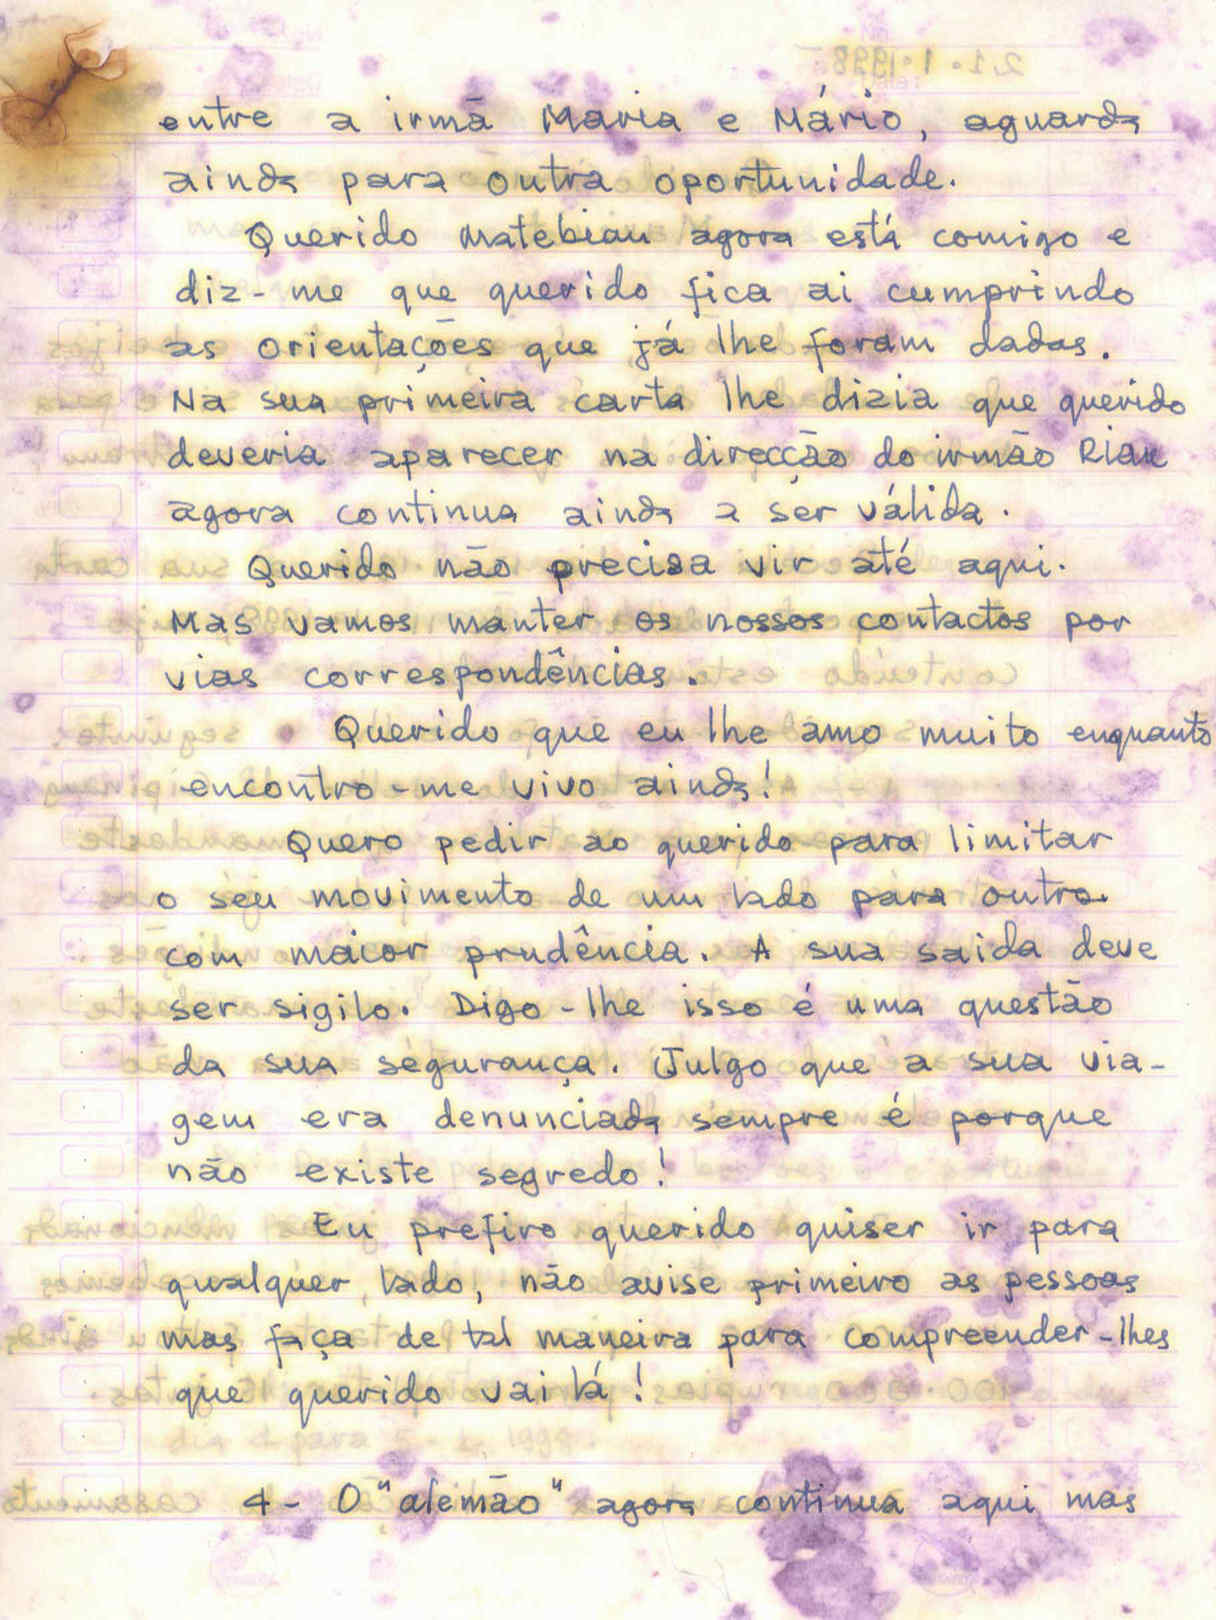 entre a irmã Maria e Mário, aguarda
ainda para outra oportunidade.
Querido Matebian agora está comigo e
diz-me que querido fica ai cumprindo
as orientações que já lhe foram dadas.
Na sua primeira carta lhe dizia que querido
deveria aparecer na direcção do irmão Riak
agora continua ainda a ser válida.
Querido não precisa vir até aqui.
Mas vamos manter os nossos contactos por
vias correspondências.
Querido que eu lhe amo muito enquanto
encontro-me vivo ainda!
Quero pedir ao querido para limitar
o seu movimento de um lado para outro.
com maior prudência. A sua saida deve
ser sigilo. Digo-lhe isso é uma questão
da sua segurança. Julgo que a sua via-
gem era denunciada sempre é porque
não existe segredo!
Eu prefiro querido quiser ir para
qualquer lado, não avise primeiro as pessoas
mas faça de tal maneira para compreender-lhes
que querido vai lá!
4- O "alemão" agora continua aqui mas